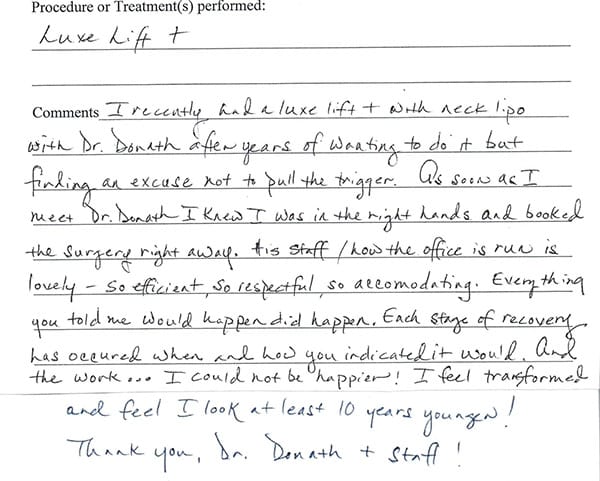 Procedure or Treatment(s) performed:
Luxe Lift +
Comments I recently had a luxe lift + with neck lipo
with Dr. Donath after years of wanting to do it but
finding an excuse not to pull the trigger. As soon as I
meet Dr. Donath I knew I was in the right hands and booked
the surgery right away. His staff / how the office is run is
lovely - so efficient, so respectful, so accomodating. Everything
you told me would happen did happen. Each stage of recovery
has occured when and how you indicated it would. And
the work... I could not be happier! I feel transformed
and feel I look at least 10 years younger!
Thank you, Dr. Donath + staff!